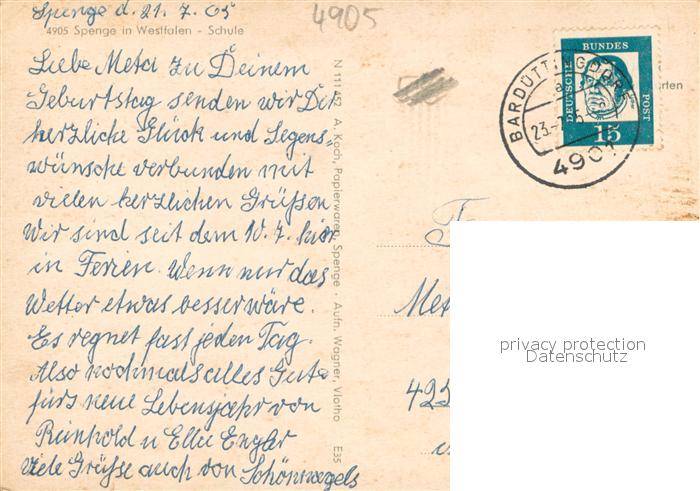 Spenge d. 21. 7. 65
4905
4905 Spenge in Westfalen - Schule
Liebe Meta zu Deinem
Geburtstag senden wir Dir
herzliche Glück und Segens
wünsche verbunden mit
vielen herzlichen Grüßen
Wir sind seit dem 10. 7. hier
in Ferien. Wenn nur das
Wetter etwas besser wäre.
Es regnet fast jeden Tag.
Also nochmals alles Gute
fürs neue Lebensjahr von
Reinhold u Elli Engler
viele Grüsse auch von Schönwegels
N 111452 A. Koch, Papierwaren, Spenge · Aufn. Wagner, Vlotho E35
DEUTSCHE BUNDES POST
15
BARDÜTTINGDORF
4901
arten
F
Met
privacy protection
Datenschutz